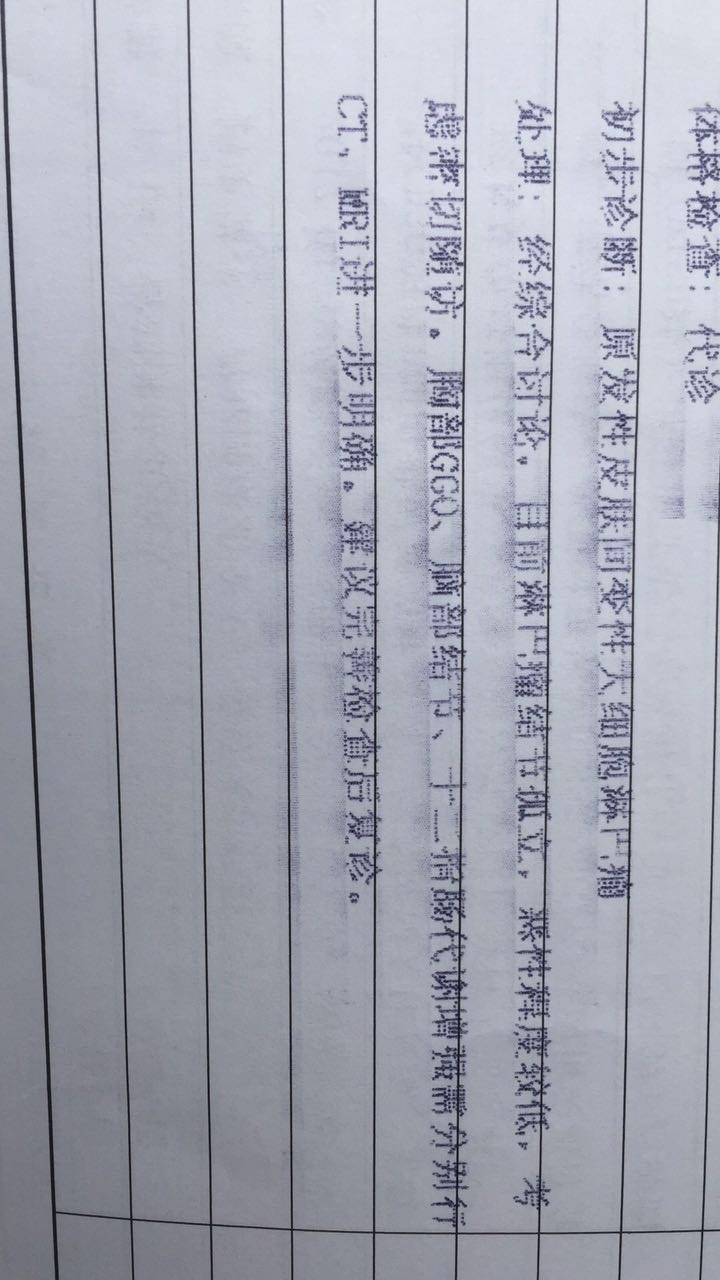 体格检查：代诊
初步诊断：原发性皮肤间变性大细胞淋巴瘤
处理：经综合讨论。目前淋巴瘤结节孤立，恶性程度较低，考
虑密切随访。胸部GGO、脑部结节、十二指肠代谢增强需分别行
CT，MRI进一步明确。建议完善检查后复诊。